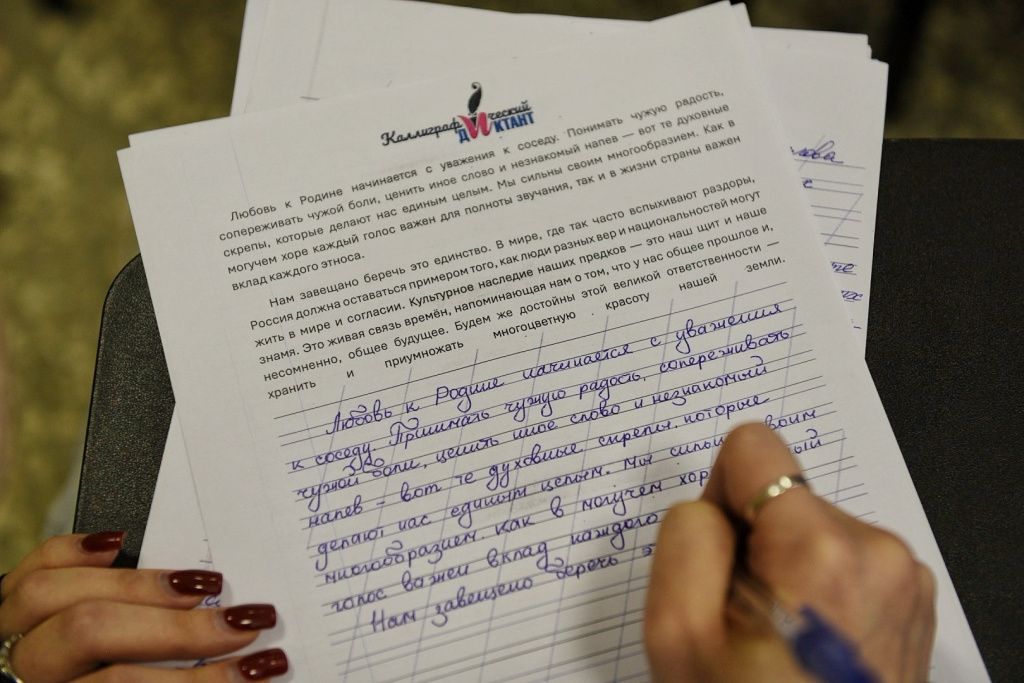 Каллиграфический
дИКТАНТ
Любовь к Родине начинается с уважения к соседу. Понимать чужую радость,
сопереживать чужой боли, ценить иное слово и незнакомый напев — вот те духовные
скрепы, которые делают нас единым целым. Мы сильны своим многообразием. Как в
могучем хоре каждый голос важен для полноты звучания, так и в жизни страны важен
вклад каждого этноса.
Нам завещано беречь это единство. В мире, где так часто вспыхивают раздоры,
Россия должна оставаться примером того, как люди разных вер и национальностей могут
жить в мире и согласии. Культурное наследие наших предков — это наш щит и наше
знамя. Это живая связь времён, напоминающая нам о том, что у нас общее прошлое и,
несомненно, общее будущее. Будем же достойны этой великой ответственности —
хранить и приумножать многоцветную красоту нашей земли.
Любовь к Родине начинается с уважения
к соседу. Принимать чужую радость, сопереживать
чужой боли, ценить иное слово и незнакомый
напев - вот те духовные скрепы, которые
делают нас единым целым. Мы сильны своим
многообразием. Как в могучем хор
голос важен вклад каждого
Нам завещено беречь э